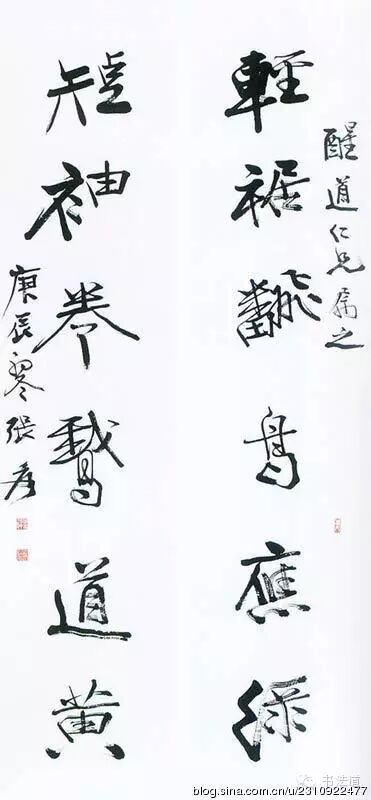 醒道仁兄屬之
輕裾飜鳥應綠
短袖拳鵝道黃
庚辰張爰
书法道
blog.sina.com.cn/u/2310922477